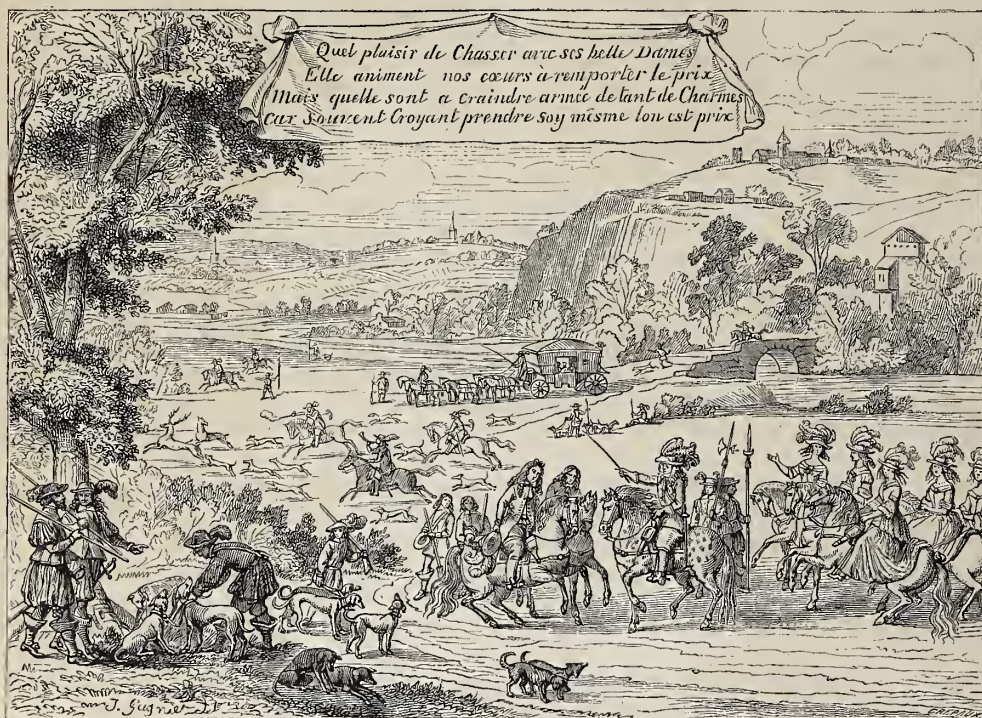 Quel plaisir de Chasser avec ses belle Dames
Elle animent nos cœurs a remporter le prix
Mais quelle sont a craindre armée de tant de Charmes
Car Souvent Croyant prendre Soy mesme lon est prix